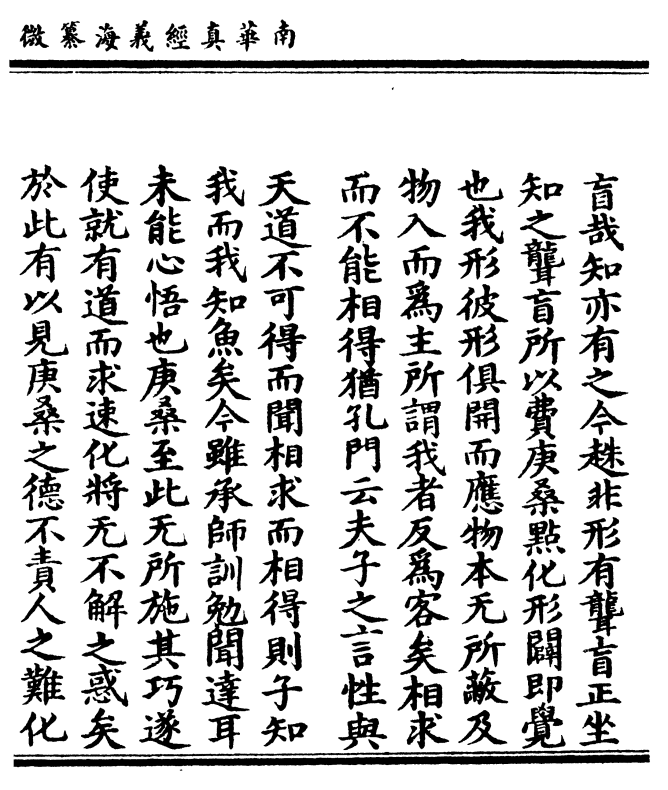 南華真經義海纂微
盲哉知亦有之今趎非形有聾盲正坐
知之聾盲所以費庚桑點化形闢即覺
也我形彼形俱開而應物本无所蔽及
物入而爲主所謂我者反爲客矣相求
而不能相得猶孔門云夫子之言性與
天道不可得而聞相求而相得則子知
我而我知魚矣今雖承師訓勉聞達耳
未能心悟也庚桑至此无所施其巧遂
使就有道而求速化將无不解之惑矣
於此有以見庚桑之德不責人之難化